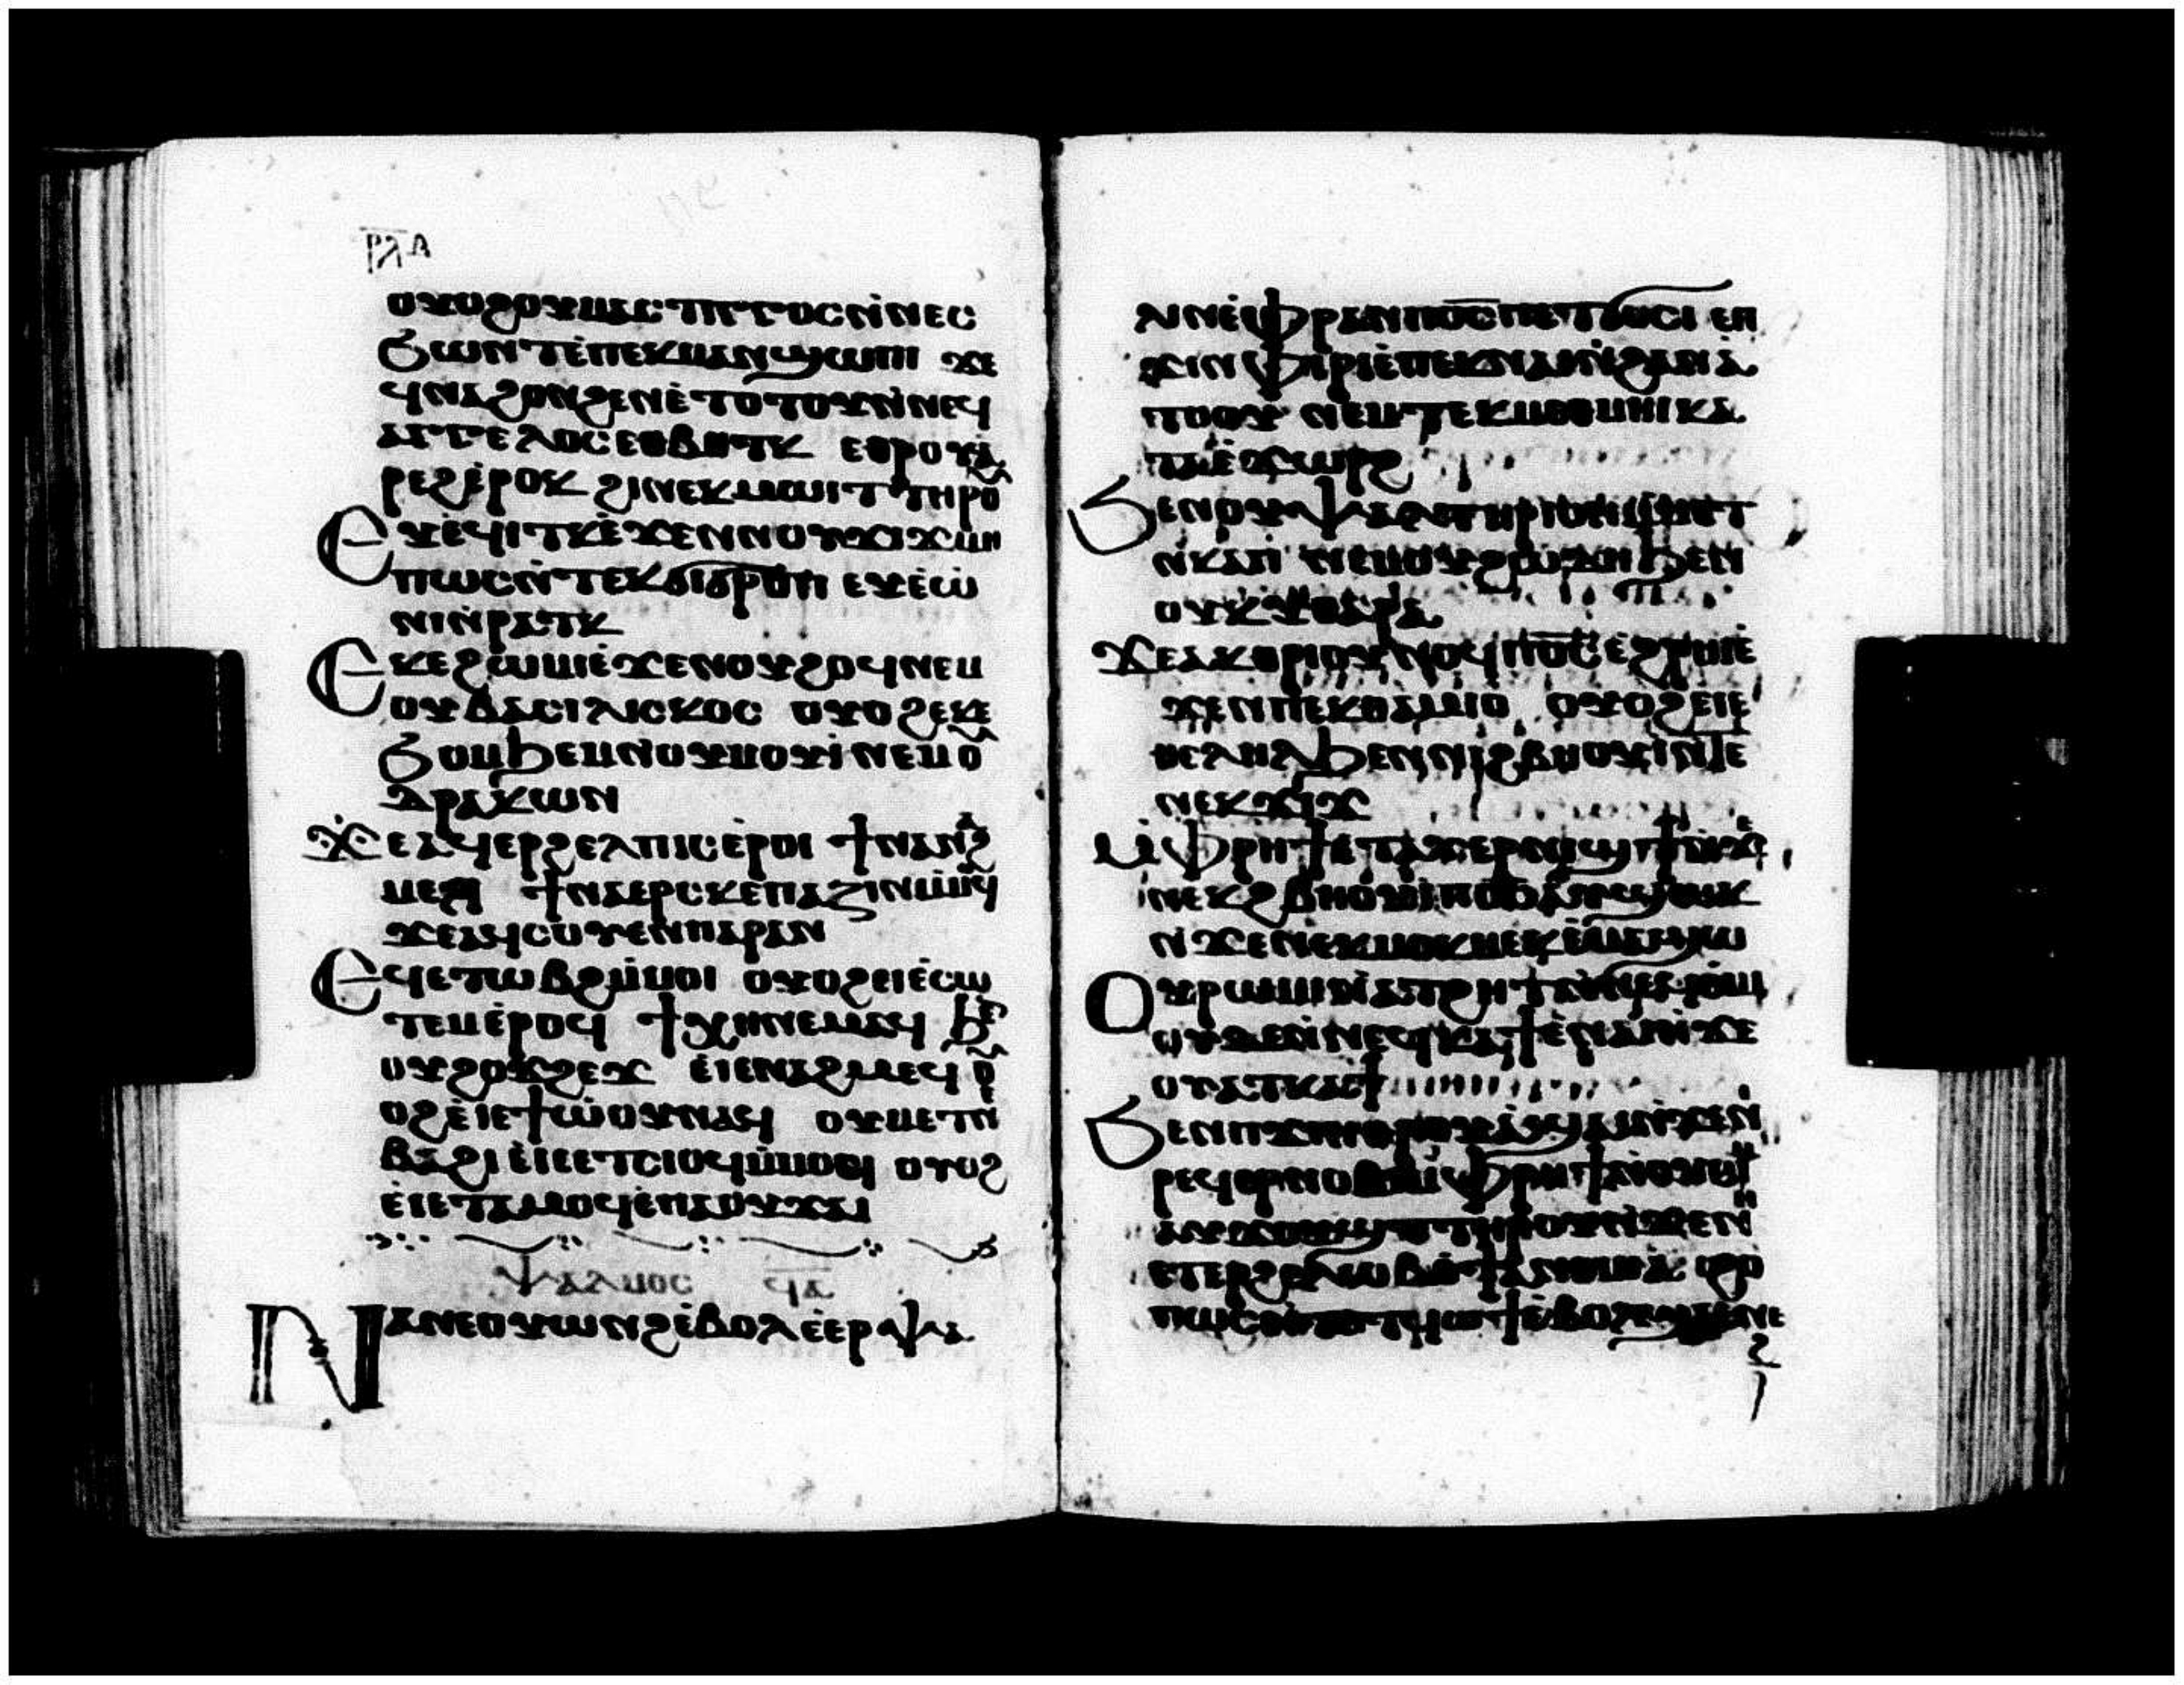 ⲣⲗⲇ
ⲟⲩⲟϩ ⲟⲩⲙⲁⲥⲧⲓⲅⲅⲟⲥ ⲛ̀ⲛⲉⲥ
ϧⲱⲛⲧ ⲉ̀ⲡⲉⲕⲙⲁⲛϣⲱⲡⲓ ϫⲉ
ϥⲛⲁϩⲟⲛϩⲉⲛ ⲉ̀ⲧⲟⲧⲟⲩ ⲛ̀ⲛⲉϥ
ⲁⲅⲅⲉⲗⲟⲥ ⲉⲑⲃⲏⲧⲕ ⲉⲑⲣⲟⲩⲁ̀
ⲣⲉϩ ⲉ̀ⲣⲟⲕ ϩⲓ ⲛⲉⲕⲙⲱⲓⲧ ⲧⲏⲣⲟⲩ
Ⲉⲩⲉ̀ϥⲓⲧⲕ ⲉ̀ϫⲉⲛ ⲛⲟⲩϫⲓϫ ⲙⲏ
ⲡⲱⲥ ⲛ̀ⲧⲉⲕϭⲓϭⲣⲟⲡ ⲉⲩⲉ̀ⲱ̀
ⲛⲓ ⲛ̀ⲣⲁⲧⲕ
Ⲉⲕⲉϩⲱⲙⲓ ⲉ̀ϫⲉⲛ ⲟⲩϩⲟϥ ⲛⲉⲙ
ⲟⲩⲃⲁⲥⲓⲗⲓⲥⲕⲟⲥ ⲟⲩⲟϩ ⲉⲕⲉ
ϩⲟⲙϧⲉⲙ ⲛⲟⲩⲙⲟⲩⲓ̀ ⲛⲉⲙ ⲟⲩ
ⲇⲣⲁⲕⲱⲛ
Ϫⲉ ⲁϥⲉⲣϩⲉⲗⲡⲓⲥ ⲉ̀ⲣⲟⲓ ϯⲛⲁⲛⲁϩ
ⲙⲉϥ ϯⲛⲁⲉⲣⲥⲕⲉⲡⲁⲍⲓⲛ ⲙ̀ⲙⲟϥ
ϫⲉ ⲁϥⲥⲟⲩⲉⲛ ⲡⲁⲣⲁⲛ
Ⲉϥⲉⲧⲱⲃϩ ⲙ̀ⲙⲟⲓ ⲟⲩⲟϩ ⲉⲓⲉ̀ⲥⲱ
ⲧⲉⲙ ⲉ̀ⲣⲟϥ ϯⲭⲏ ⲛⲉⲙⲁϥ ϧⲉⲛ
ⲟⲩϩⲟϫϩⲉϫ ⲉⲓⲉⲛⲁϩⲙⲉϥ ⲟⲩ
ⲟϩ ⲉ̀ⲓⲉϯⲱ̀ⲟⲩ ⲛⲁϥ ⲟⲩⲙⲉⲧⲛ
ⲃⲁϩⲓ ⲉ̀ⲓⲉⲧⲥⲓⲟϥ ⲙ̀ⲙⲟⲥ ⲟⲩⲟϩ
ⲉ̀ⲓⲉⲧⲁⲙⲟϥ ⲉ̀ⲡⲁⲟⲩϫⲁⲓ
ⲯⲁⲗⲙⲟⲥ ϥⲁ
Ⲛⲁⲛⲉ ⲟⲩⲱⲛϩ ⲉ̀ⲃⲟⲗ ⲉ̀ⲉⲣⲯⲁ
ⲗⲓⲛ ⲉ̀ⲫⲣⲁⲛ ⲡϭⲟⲥ ⲡⲉⲧϭⲟⲥⲓ ⲉⲡ
ϫⲓⲛⲫⲓⲣⲓ ⲉ̀ⲡⲉⲕⲛⲁⲓ ⲛ̀ϩⲁⲛⲁ̀
ⲧⲟⲟⲩⲓ ⲛⲉⲙ ⲧⲉⲕⲙⲉⲑⲙⲏⲓ ⲕⲁ
ⲧⲁ ⲉ̀ϫⲱⲣϩ
Ϧⲉⲛ ⲟⲩⲯⲁⲗⲧⲏⲣⲓⲟⲛ ⲙ̀ⲙⲏⲧ
ⲛ̀ⲕⲁⲡ ⲛⲉⲙ ⲟⲩϩⲱⲇⲏ ϧⲉⲛ
ⲟⲩⲕⲩⲑⲁⲣⲁ
Ϫⲉ ⲁⲕⲑⲣⲓⲟⲩⲛⲟϥ ⲡϭⲟⲥ ⲉ̀ϩⲣⲏⲓ ⲉ̀
ϫⲉⲛ ⲡⲉⲕⲑⲁⲙⲓⲟ ⲟⲩⲟϩ ⲉⲓⲉ
ⲑⲉⲗⲏⲗ ϧⲉⲛ ⲛⲓϩⲃⲏⲟⲩⲓ̀ ⲛ̀ⲧⲉ
ⲛⲉⲕϫⲓϫ
Ⲙ̀ⲫⲣⲏϯ ⲉ̀ⲧⲁⲩⲉⲣⲛⲓϣϯ ⲛ̀ϫⲉ
ⲛⲉⲕϩⲃⲏⲟⲩⲓ̀ ⲡϭⲟⲥ ⲁⲩϣⲱⲕ
ⲛ̀ϫⲉ ⲛⲉⲕⲙⲟⲕⲙⲉⲕ ⲉ̀ⲙⲁϣⲱ
Ⲟⲩⲣⲱⲙⲓ ⲛ̀ⲁⲧϩⲏⲧ ⲛ̀ⲛⲉϥⲉ̀ⲙⲓ
ⲟⲩⲟϩ ⲛ̀ⲛⲉϥⲕⲁϯ ⲉ̀ⲛⲁⲓ ⲛ̀ϫⲉ
ⲟⲩⲁⲧⲕⲁϯ
Ϧⲉⲛ ⲡϫⲓⲛⲑⲣⲟⲩⲁ̀ϣⲁⲓ ⲛ̀ϫⲉ ⲛⲓ
ⲣⲉϥⲉⲣⲛⲟⲃⲓ ⲙ̀ⲫⲣⲏϯ
ⲁⲩϫⲟⲩϣⲧ ⲧⲏⲣⲟⲩ ⲛ̀ϫⲉ ⲛⲏ
ⲉⲧⲉⲣϩⲱⲃ
ⲡⲱⲥ ⲛ̀ⲧⲟⲩϥⲱϯ ⲉ̀ⲃⲟⲗ ϣⲁ ⲉⲛⲉ
ϩ